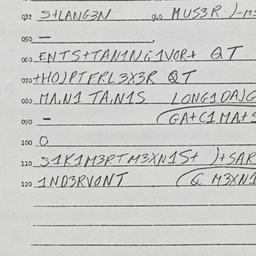 032 S+LANG3N 040 MUS3R
050 —
060 ENTS+TAN1NG1VOR+ QT
070 +HOJPTERL3X3R QT
080 MA,N1 TA,N1S LONG1DAJG
090 - GA+C1MA+S
100 O
110 S1K1M3RTM3XN1S+ J+SAR
120 1ND3RVONT Q M3XN1